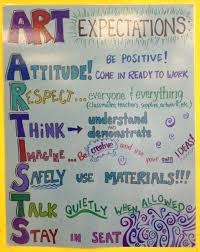 ART EXPECTATIONS
ATTITUDE! BE POSITIVE!
COME IN READY TO WORK
RESPECT... everyone & everything
(classmates, teachers, supplies, artwork, etc.)
THINK → understand
and
demonstrate
IMAGINE ... Be creative and use your own IDEAS!
SAFELY USE MATERIALS!!!
TALK QUIETLY WHEN ALLOWED
STAY IN SEAT